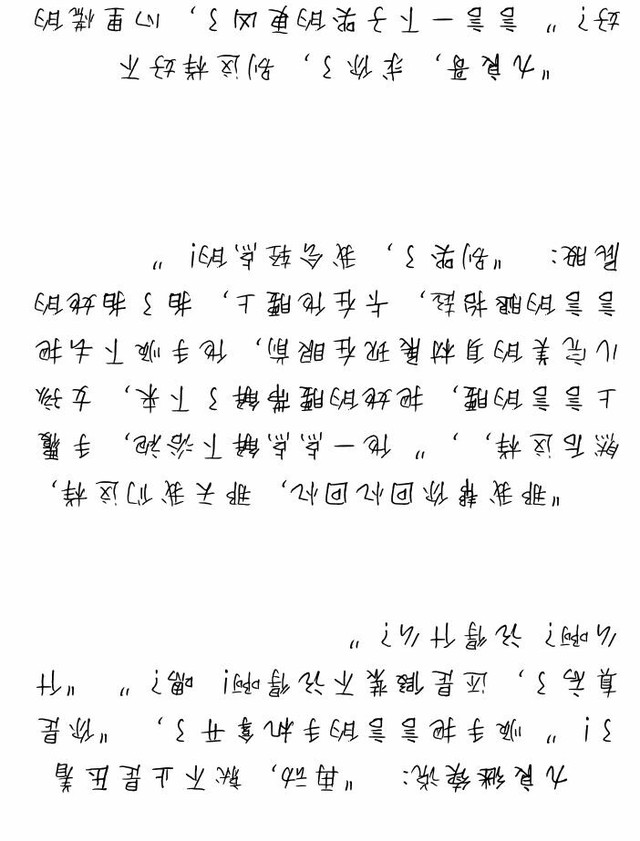 九良继续说： “再动，就不止是压着
了！”顺手把言言的手机拿开了，“你是
真忘了，还是假装不记得啊！嗯？” “什
么啊？记得什么？”
“那我帮你回忆回忆，那天我们这样，
然后这样，，”他一点点解下浴袍，手覆
上言言的腰，把她的腰带解了下来，女孩
儿完美的身材展现在眼前，他手顺下去把
言言的腿抬起，卡在他腰上，拍了拍她的
屁股：“别哭了，我会轻点的！”
“九良哥，求你了，别这样好不
好？”言言一下子哭的更凶了，心里慌的